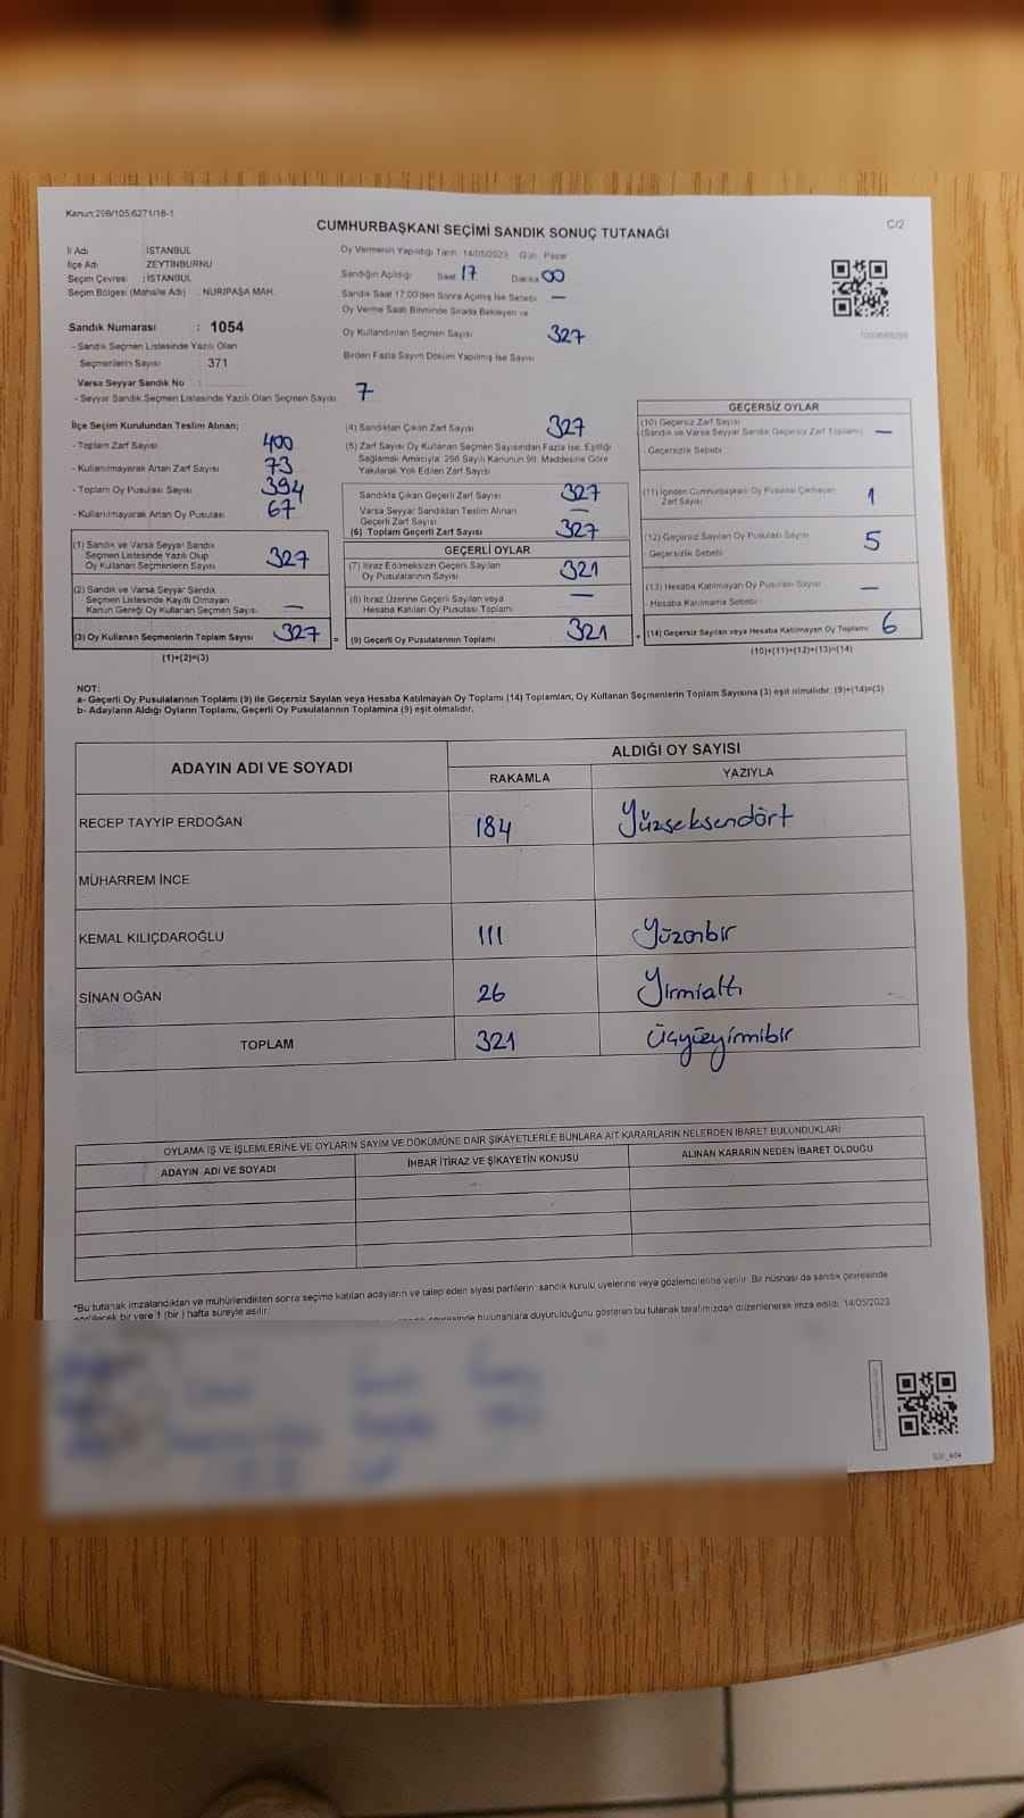 Kanun:298/105,6271/18-1
CUMHURBAŞKANI SEÇİMİ SANDIK SONUÇ TUTANAĞI
C/2
İl Adı : İSTANBUL
İlçe Adı : ZEYTİNBURNU
Seçim Çevresi : İSTANBUL
Seçim Bölgesi (Mahalle Adı) : NURİPAŞA MAH.
Sandık Numarası : 1054
- Sandık Seçmen Listesinde Yazılı Olan
Seçmenlerin Sayısı : 371
Varsa Seyyar Sandık No
- Seyyar Sandık Seçmen Listesinde Yazılı Olan Seçmen Sayısı
7
Oy Vermenin Yapıldığı Tarih: 14/05/2023 Gün: Pazar
Sandığın Açıldığı Saat 17 Dakika 00
Sandık Saat 17:00'den Sonra Açılmış İse Sebebi —
Oy Verme Saati Bitiminde Sırada Bekleyen ve
Oy Kullandırılan Seçmen Sayısı 327
Birden Fazla Sayım Döküm Yapılmış İse Sayısı
İlçe Seçim Kurulundan Teslim Alınan;
- Toplam Zarf Sayısı 400
- Kullanılmayarak Artan Zarf Sayısı 73
- Toplam Oy Pusulası Sayısı 394
- Kullanılmayarak Artan Oy Pusulası 67
(1) Sandık ve Varsa Seyyar Sandık
Seçmen Listesinde Yazılı Olup
Oy Kullanan Seçmenlerin Sayısı 327
(2) Sandık ve Varsa Seyyar Sandık
Seçmen Listesinde Kayıtlı Olmayan
Kanun Gereği Oy Kullanan Seçmen Sayısı —
(3) Oy Kullanan Seçmenlerin Toplam Sayısı 327 =
(1)+(2)=(3)
(4) Sandıktan Çıkan Zarf Sayısı 327
(5) Zarf Sayısı Oy Kullanan Seçmen Sayısından Fazla İse, Eşitliği
Sağlamak Amacıyla, 298 Sayılı Kanunun 98. Maddesine Göre
Yakılarak Yok Edilen Zarf Sayısı
Sandıkta Çıkan Geçerli Zarf Sayısı 327
Varsa Seyyar Sandıktan Teslim Alınan
Geçerli Zarf Sayısı —
(6) Toplam Geçerli Zarf Sayısı 327
GEÇERLİ OYLAR
(7) İtiraz Edilmeksizin Geçerli Sayılan
Oy Pusulalarının Sayısı 321
(8) İtiraz Üzerine Geçerli Sayılan veya
Hesaba Katılan Oy Pusulası Toplamı —
(9) Geçerli Oy Pusulalarının Toplamı 321 +
GEÇERSİZ OYLAR
(10) Geçersiz Zarf Sayısı
(Sandık ve Varsa Seyyar Sandık Geçersiz Zarf Toplamı) —
- Geçersizlik Sebebi :
(11) İçinden Cumhurbaşkanı Oy Pusulası Çıkmayan
Zarf Sayısı 1
(12) Geçersiz Sayılan Oy Pusulası Sayısı 5
- Geçersizlik Sebebi :
(13) Hesaba Katılmayan Oy Pusulası Sayısı —
- Hesaba Katılmama Sebebi :
(14) Geçersiz Sayılan veya Hesaba Katılmayan Oy Toplamı 6
(10)+(11)+(12)+(13)=(14)
NOT:
a- Geçerli Oy Pusulalarının Toplamı (9) ile Geçersiz Sayılan veya Hesaba Katılmayan Oy Toplamı (14) Toplamları, Oy Kullanan Seçmenlerin Toplam Sayısına (3) eşit olmalıdır. (9)+(14)=(3)
b- Adayların Aldığı Oyların Toplamı, Geçerli Oy Pusulalarının Toplamına (9) eşit olmalıdır.
ADAYIN ADI VE SOYADI
ALDIĞI OY SAYISI
RAKAMLA YAZIYLA
RECEP TAYYİP ERDOĞAN 184 Yüzseksendört
MUHARREM İNCE
KEMAL KILIÇDAROĞLU 111 Yüzonbir
SİNAN OĞAN 26 Yirmialtı
TOPLAM 321 Üçyüzyirmibir
OYLAMA İŞ VE İŞLEMLERİNE VE OYLARIN SAYIM VE DÖKÜMÜNE DAİR ŞİKAYETLERLE BUNLARA AİT KARARLARIN NELERDEN İBARET BULUNDUKLARI
ADAYIN ADI VE SOYADI İHBAR İTİRAZ VE ŞİKAYETİN KONUSU ALINAN KARARIN NEDEN İBARET OLDUĞU
*Bu tutanak imzalandıktan ve mühürlendikten sonra seçime katılan adayların ve talep eden siyasi partilerin sandık kurulu üyelerine veya gözlemcilerine verilir. Bir nüshası da sandık çevresinde
bir yere 1 (bir) hafta süreyle asılır.
bulunanlara duyurulduğunu gösteren bu tutanak tarafımızdan düzenlenerek imza edildi. 14/05/2023